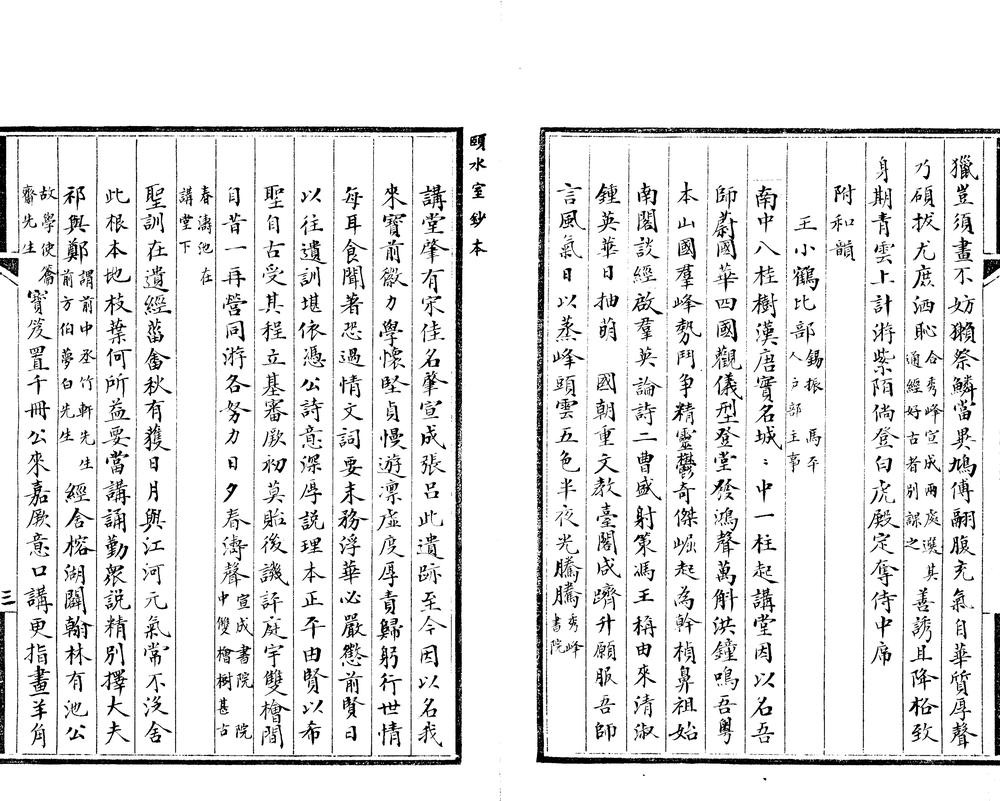 獵豈須畫不妨獺祭鱗當異鳩傅翮腹充氣自華質厚聲
乃碩拔尤庶洒恥合秀峰宣成兩處選其通經好古者別課之善誘且降格致
身期青雲上計游紫陌倘登白虎殿定奪侍中席
附和韻
王小鶴比部錫振 馬平人戶部主事
南中八桂樹漢唐實名城〻中一柱起講堂因以名吾
師蔚國華四國觀儀型登堂發鴻聲萬斛洪鐘鳴吾粵
本山國羣峰勢鬥爭精靈鬱奇傑崛起為幹楨鼻祖始
南閣談經啟羣英論詩二曹盛射策馮王稱由來清淑
鍾英華日抽萌 國朝重文教臺閣咸躋升願服吾師
言風氣日以蒸峰頭雲五色半夜光騰騰秀峰書院
頤水室鈔本
講堂肇有宋佳名肇宣成張呂此遺跡至今因以名我
來實前徽力學懷堅貞慢遊凛虛度厚責歸躬行世情
每耳食聞著恐過情文詞要末務浮華必嚴懲前賢日
以往遺訓堪依憑公詩意深厚説理本正平由賢以希
聖自古受其程立基審厥初莫貽後譏評庭宇雙檜間
目昔一再營同游各努力日夕春濤聲宣成書院中雙檜樹甚古
春濤池在講堂下
聖訓在遺經菑畬秋有獲日月與江河元氣常不泯舍
此根本地枝葉何所益要當講誦勤衆説精別擇大夫
祁與鄭謂前中丞竹軒先生前方伯夢白先生經舍榕湖闢翰林有池公
故學使籥齋先生寶笈置千冊公來嘉厥意口講更指畫羊角
三